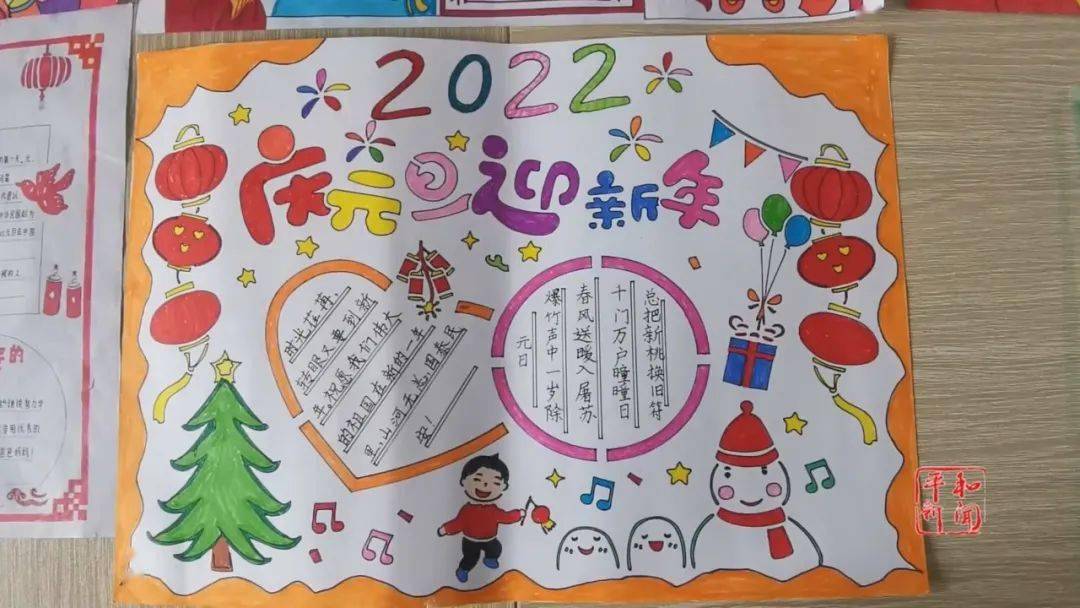 2022
庆元旦迎新年
时光荏苒、
转眼又要到新
年,祝愿我们伟大
的祖国在新的一年
里,山河无恙国泰民
安!
元日
爆竹声中一岁除
春风送暖入屠苏
千门万户瞳瞳日
总把新桃换旧符
平和
新闻